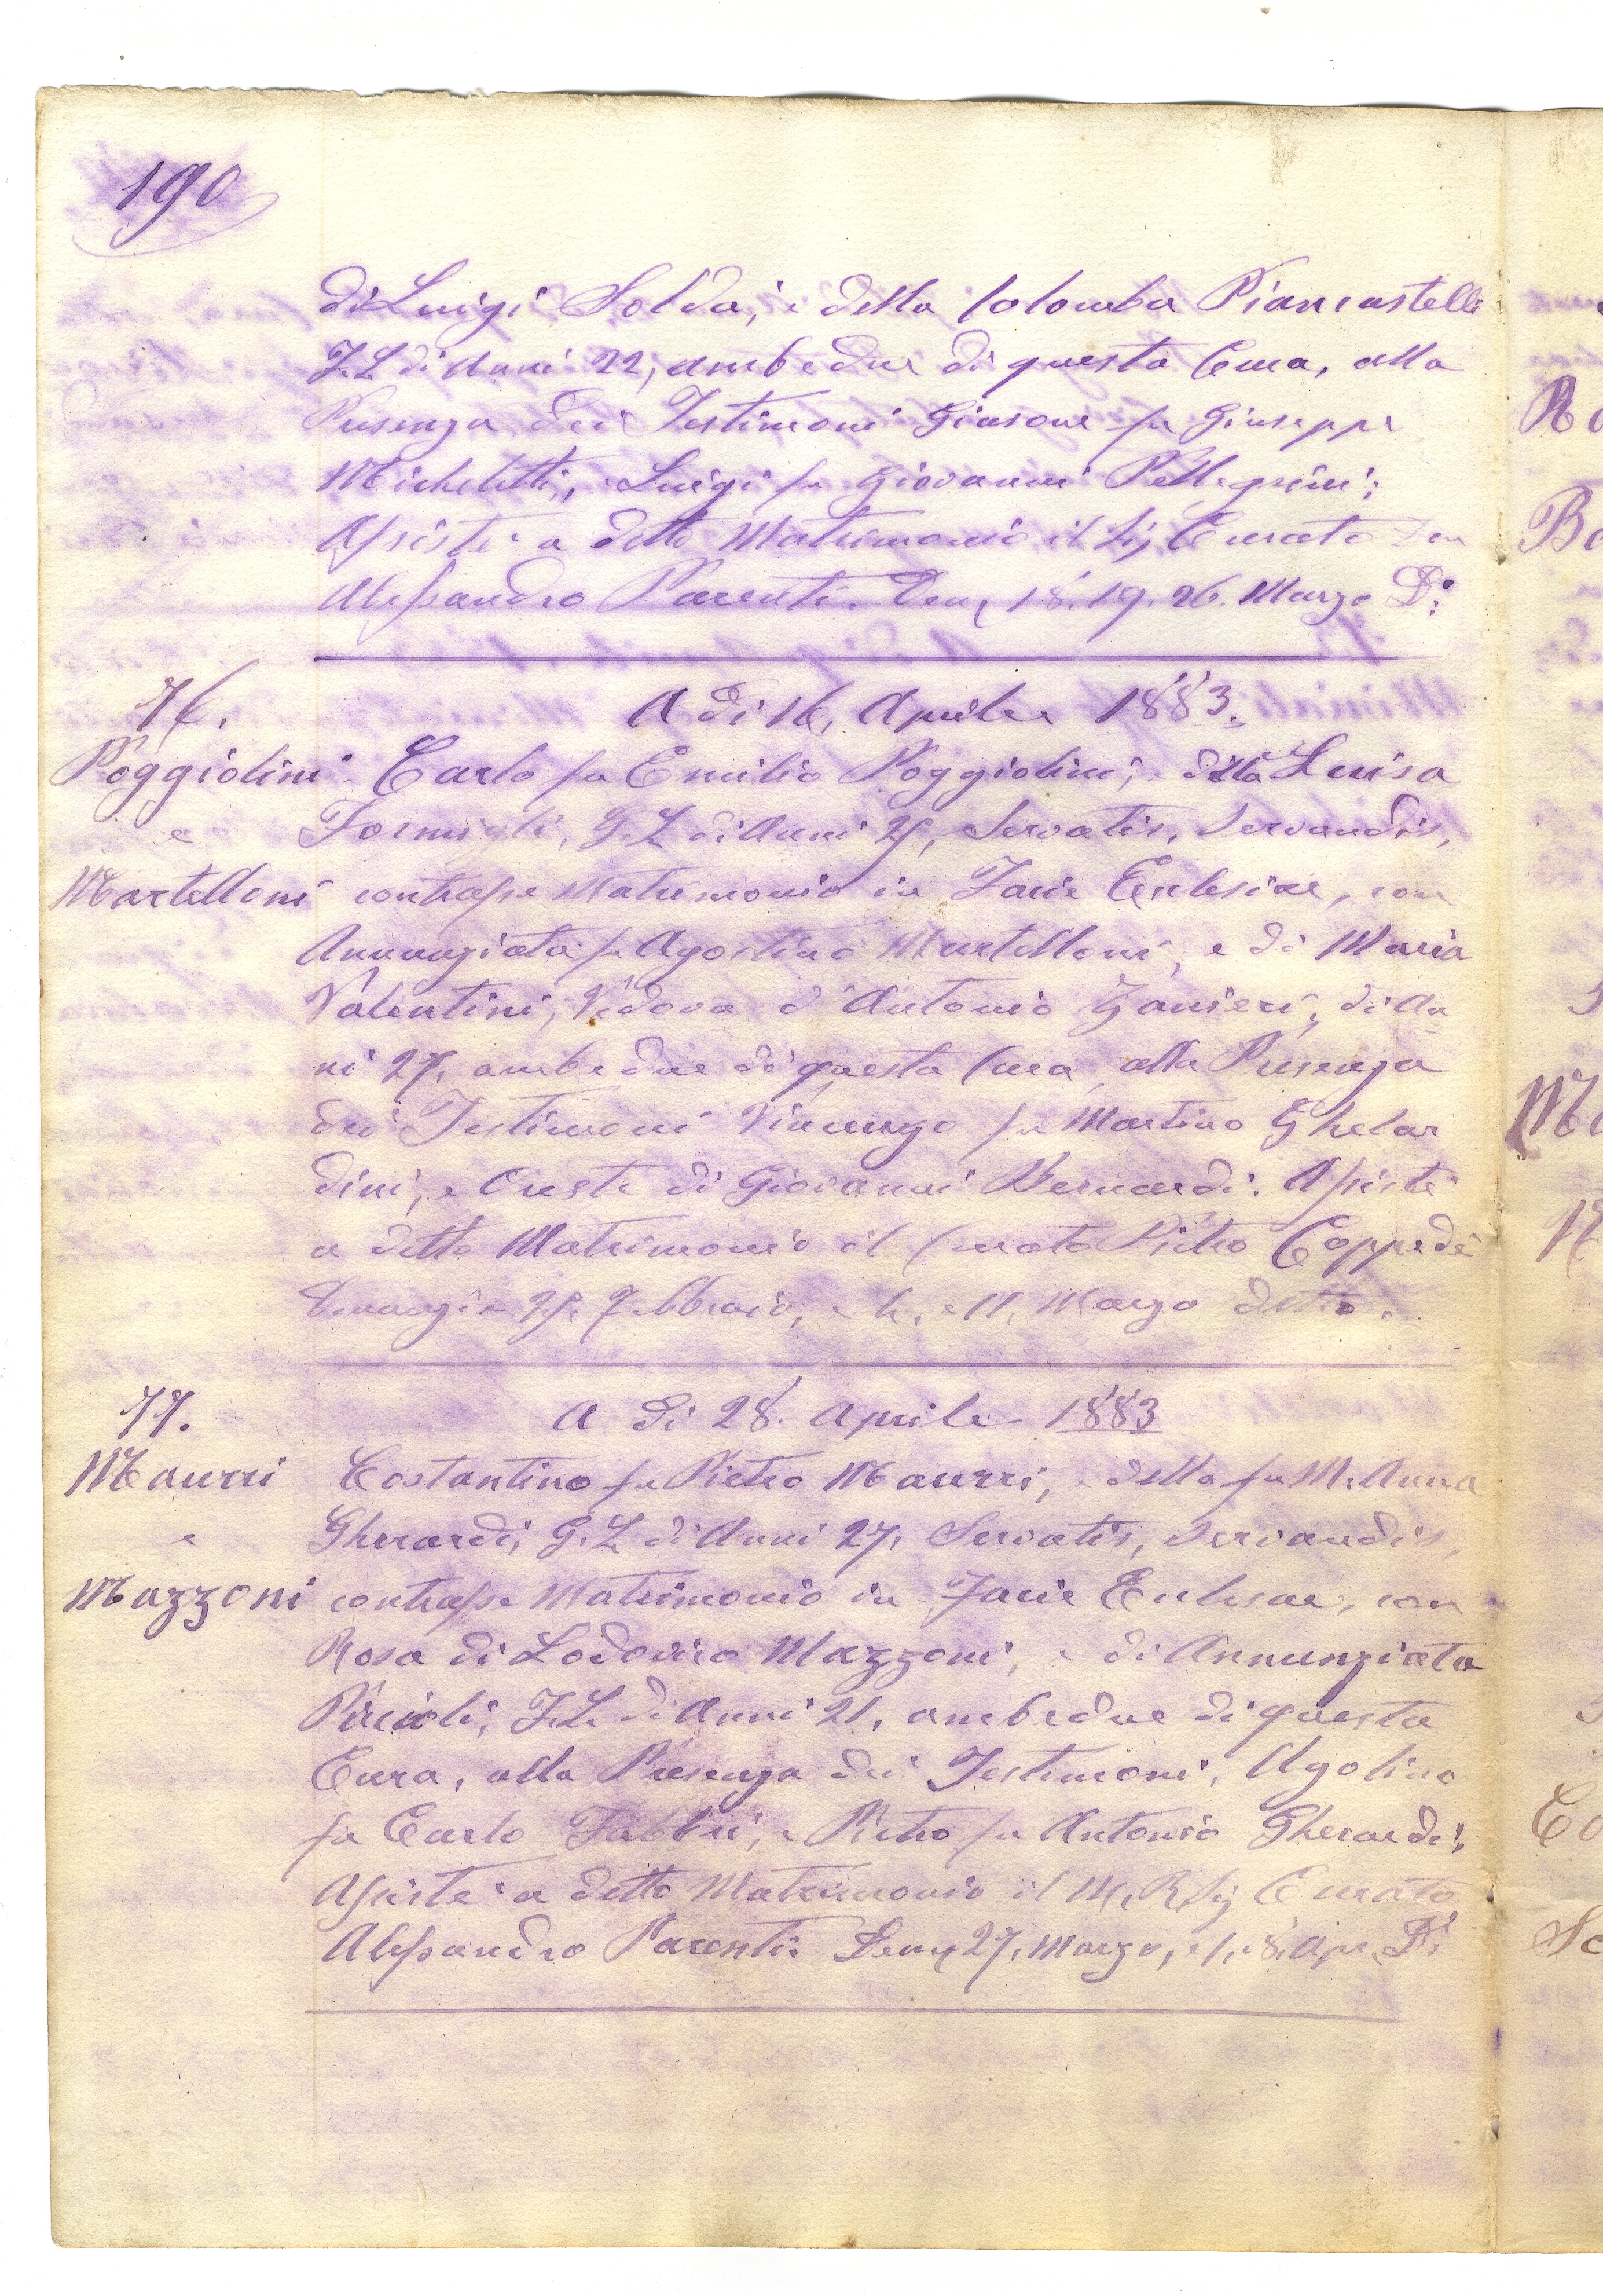 190
di Luigi Soldai, e della Colomba Piancastelli
F. L. di Anni 22, ambedue di questa Cura, alla
Presenza dei Testimoni Giasone fu Giuseppe
Micheletti, e Luigi fu Giovanni Pellegrini;
Assistè a detto Matrimonio il Sig Curato Don
Alessandro Parenti. Denu 18. 19. 26. Marzo Do:
76. A dì 16. Aprile 1883.
Poggiolini Carlo fu Emilio Poggiolini, e della Luisa
e Formigli, G. L. di Anni 25, Servatis, Servandis,
Martelloni contrasse Matrimonio in Facie Ecclesiae, con
Annunziata fu Agostino Martelloni, e di Maria
Valentini, Vedova d'Antonio Zanieri, di An
ni 27, ambedue di questa Cura, alla Presenza
dei Testimoni Vincenzo fu Martino Ghelar
dini, e Oreste di Giovanni Bernardi. Assistè
a detto Matrimonio il Curato Pietro Coppedè
25. Febbraio, e 4, e 11, Marzo detto.
77. A dì 28. Aprile 1883
Maurri Costantino fu Pietro Maurri, e della fu M. Anna
e Gherardi, G. L. di Anni 27, Servatis, Servandis,
Mazzoni contrasse Matrimonio in Facie Eclesae, con
Rosa di Lodovico Mazzoni, e di Annunziata
F. L. di Anni 21, ambedue di questa
Cura, alla Presenza dei Testimoni, Ugolino
fu Carlo Fabbri, e Pietro fu Antonio Gherardi;
Assistè a detto Matrimonio il M. R. Sig Curato
Alessandro Parenti. Denu 27, Marzo, e 1, e 8, Apr. Do: